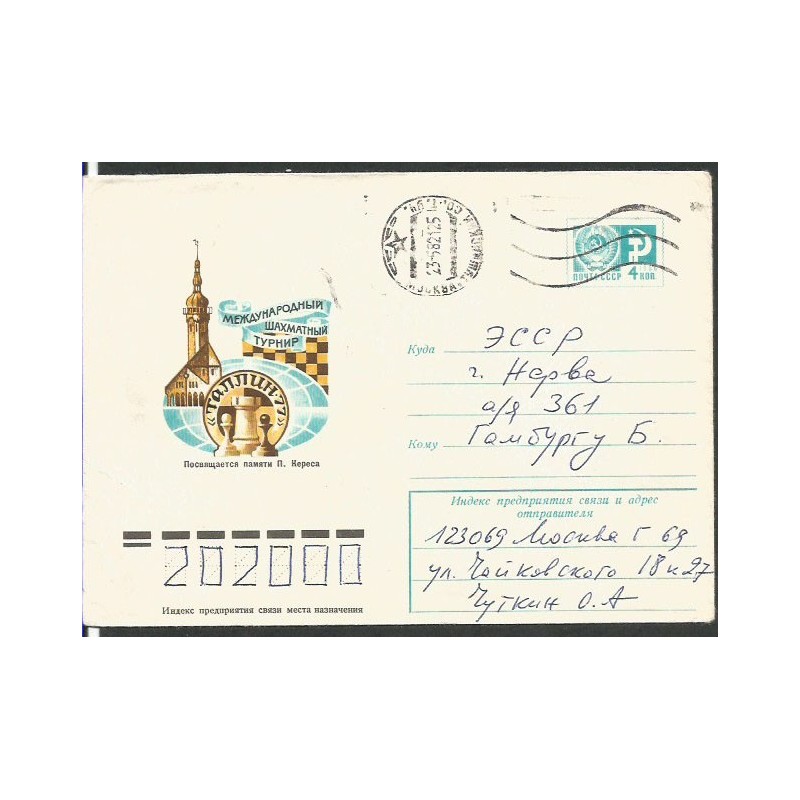 МЕЖДУНАРОДНЫЙ
ШАХМАТНЫЙ
ТУРНИР
«ТАЛЛИН-77»
Посвящается памяти П. Кереса
МОСКВА
23-682125
ПОЧТА СССР
4 КОП
Куда ЭССР
г. Нарва
а/я 361
Кому Гамбургу Б.
Индекс предприятия связи и адрес
отправителя
123069 Москва Г 69
ул. Чайковского 18 к 27
Чуткин О.А
202000
Индекс предприятия связи места назначения